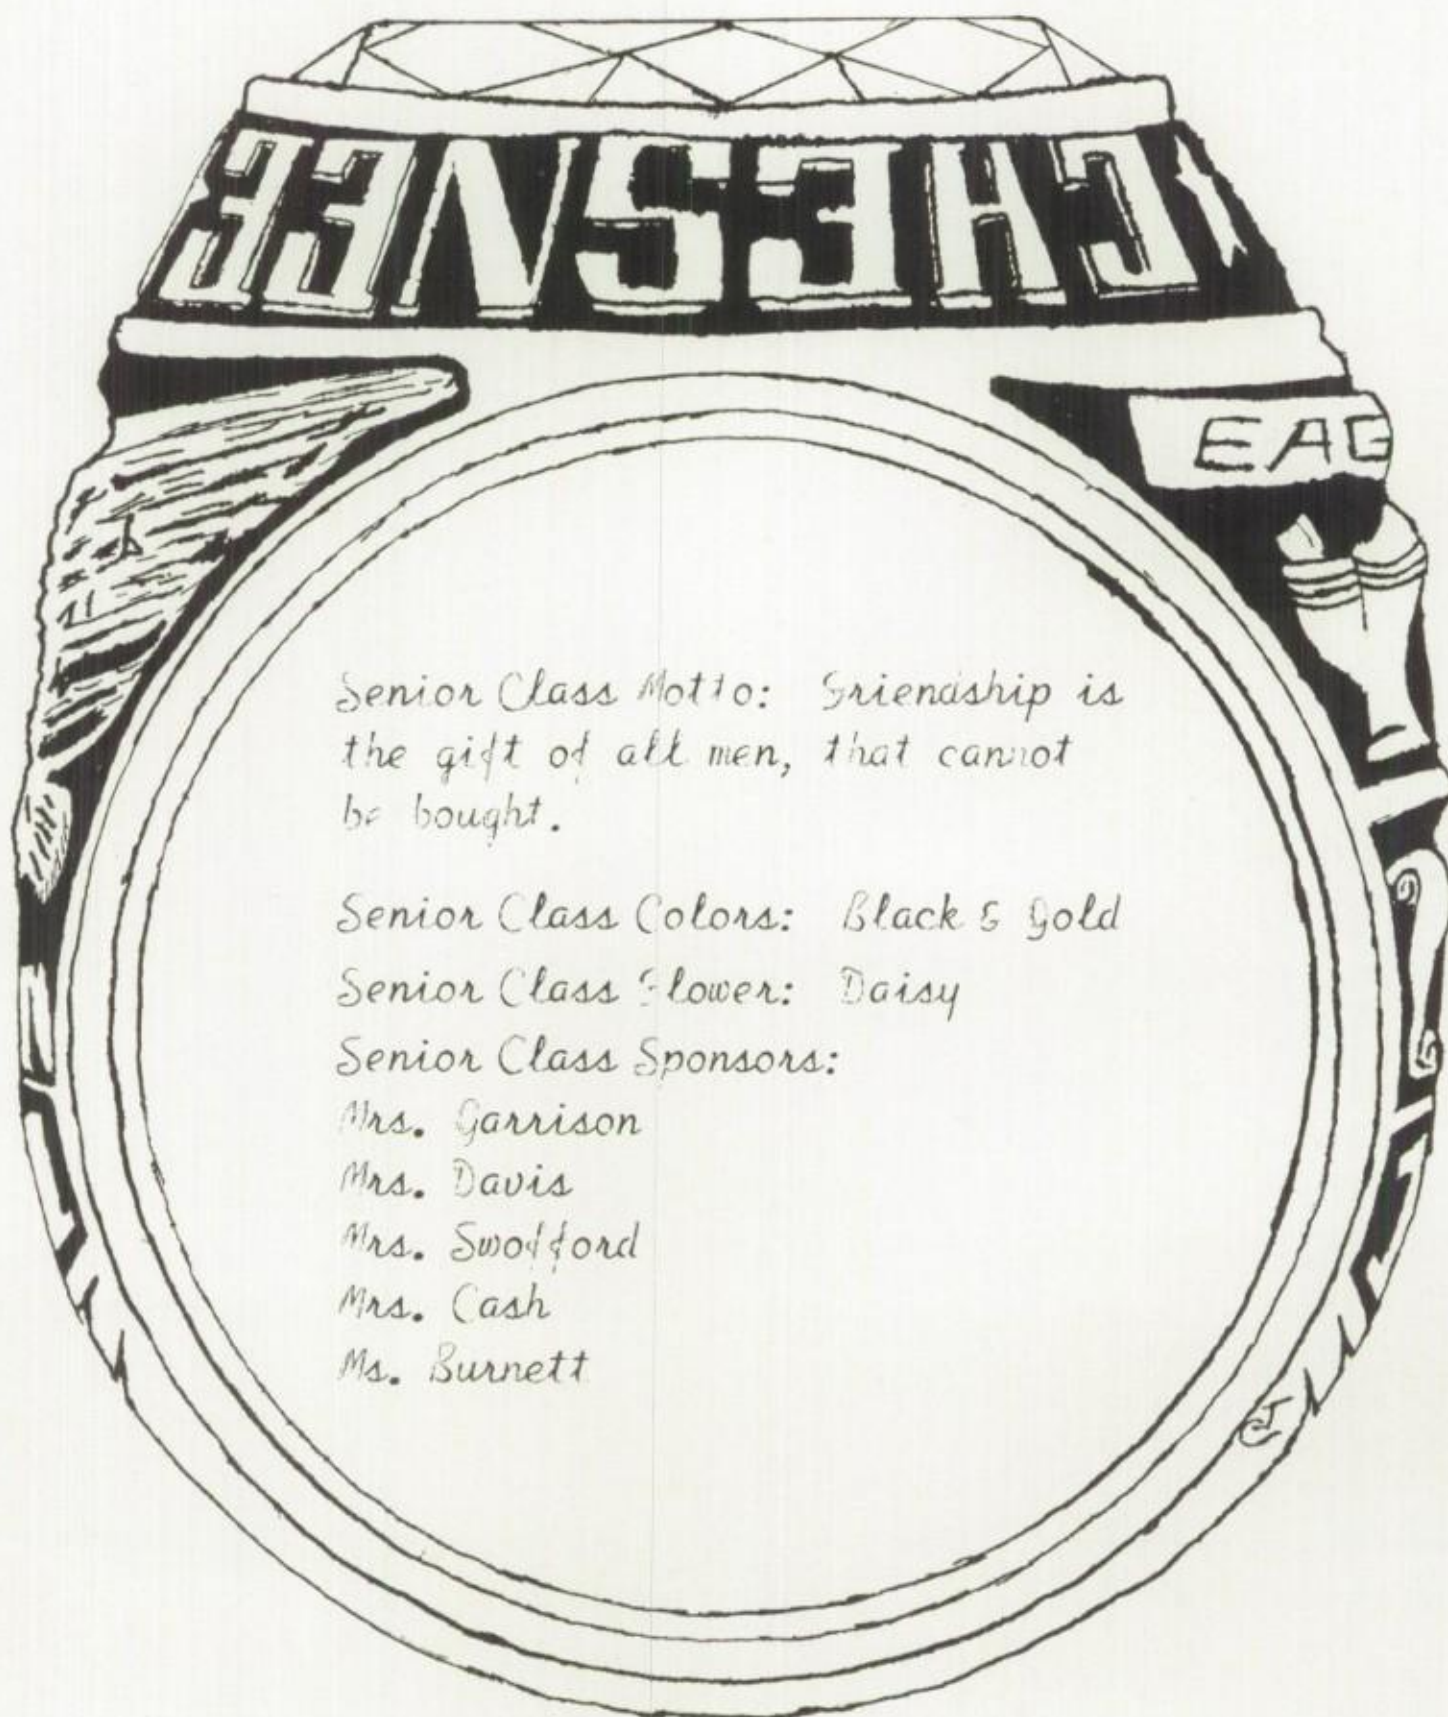 CHESNEE
EAG
Senior Class Motto: Friendship is
the gift of all men, that cannot
be bought.
Senior Class Colors: Black & Gold
Senior Class Flower: Daisy
Senior Class Sponsors:
Mrs. Garrison
Mrs. Davis
Mrs. Swofford
Mrs. Cash
Ms. Burnett